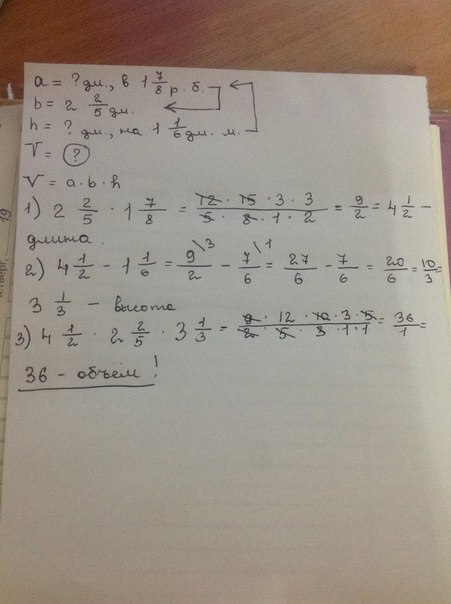 a = ? дм., в 1 7/8 р. б.
b = 2 2/5 дм.
h = ? дм., на 1 1/6 дм. м.
V = ?
V = a · b · h
1) 2 2/5 · 1 7/8 = 12 · 15 · 3 · 3 / 5 · 8 · 1 · 2 = 9/2 = 4 1/2 –
длина.
2) 4 1/2 – 1 1/6 = 9/2 \3 – 7/6 \1 = 27/6 – 7/6 = 20/6 = 10/3 =
3 1/3 – высота
3) 4 1/2 · 2 2/5 · 3 1/3 = 9 · 12 · 10 · 3 · 5 / 2 · 5 · 3 · 1 · 1 = 36/1 =
36 – объём !
19